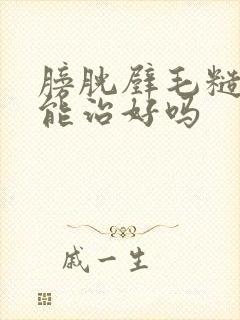 膀胱壁毛糙
能治好吗
戚一生